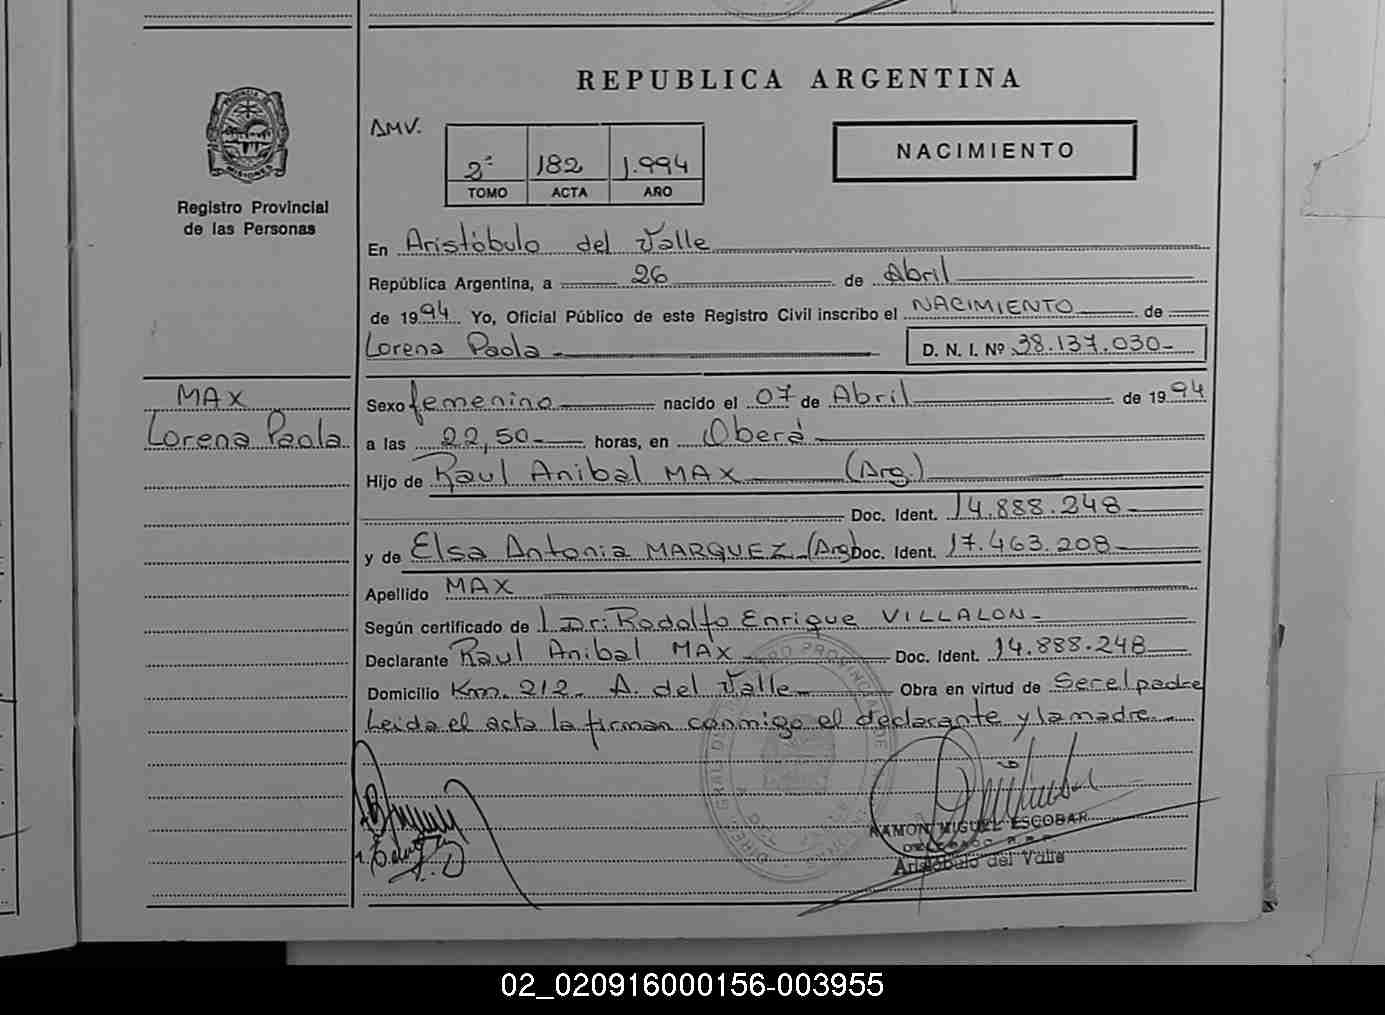 REPUBLICA ARGENTINA
PROVINCIA DE
MISIONES
Registro Provincial
de las Personas
AMV.
2º 182 1.994
TOMO ACTA AÑO
NACIMIENTO
En Aristóbulo del Valle
República Argentina, a 26 de Abril
de 1994 Yo, Oficial Público de este Registro Civil inscribo el NACIMIENTO de
Lorena Paola D. N. I. Nº 38.137.030-
MAX
Lorena Paola
Sexo femenino nacido el 07 de Abril de 1994
a las 22,50- horas, en Oberá
Hijo de Raul Anibal MAX (Arg.)
Doc. Ident. 14.888.248-
y de Elsa Antonia MARQUEZ (Arg) Doc. Ident. 17.463.208-
Apellido MAX
Según certificado de Dr. Rodolfo Enrique VILLALON-
Declarante Raul Anibal MAX Doc. Ident. 14.888.248
Domicilio Km. 212- A. del Valle- Obra en virtud de Ser el padre
Leida el acta la firman conmigo el declarante y la madre.-
RAMON MIGUEL ESCOBAR
DELEGADO R.P.P.
Aristóbulo del Valle
02_020916000156-003955